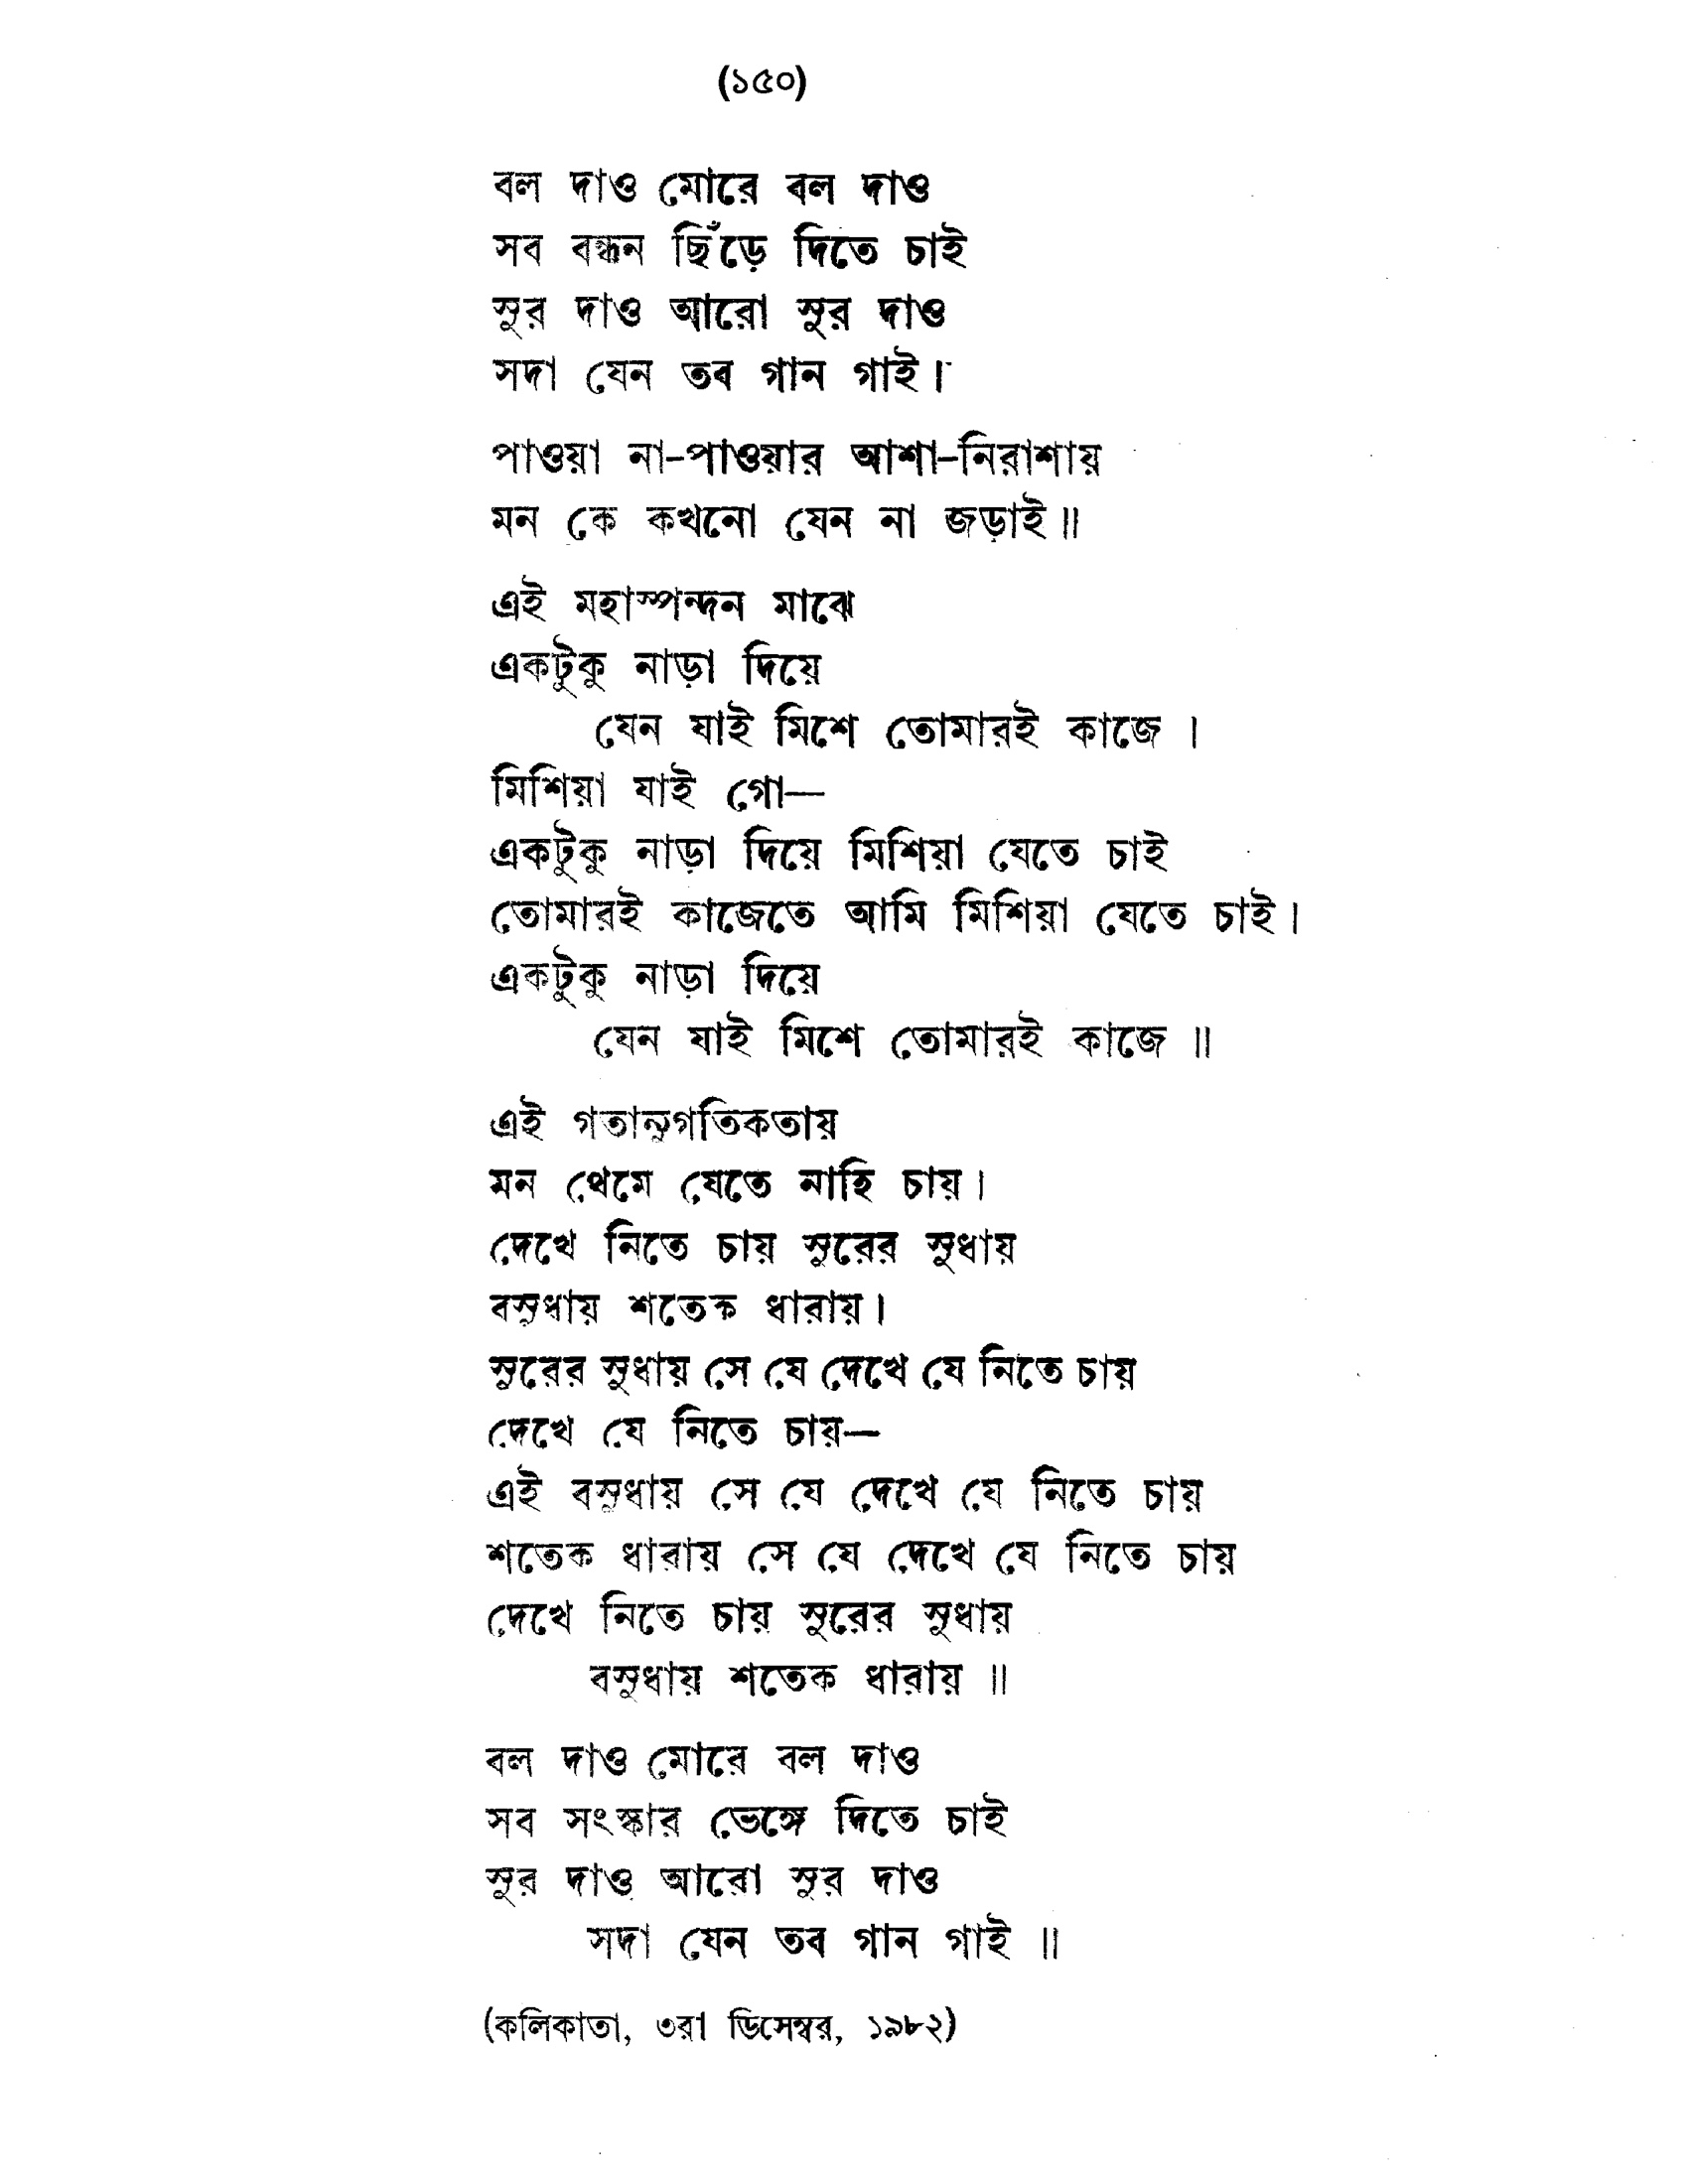 (১৫০)
বল দাও মোরে বল দাও
সব বন্ধন ছিঁড়ে দিতে চাই
সুর দাও আরো সুর দাও
সদা যেন তব গান গাই।
পাওয়া না-পাওয়ার আশা-নিরাশায়
মন কে কখনো যেন না জড়াই॥
এই মহাস্পন্দন মাঝে
একটুকু নাড়া দিয়ে
যেন যাই মিশে তোমারই কাজে ।
মিশিয়া যাই গো—
একটুকু নাড়া দিয়ে মিশিয়া যেতে চাই
তোমারই কাজেতে আমি মিশিয়া যেতে চাই।
একটুকু নাড়া দিয়ে
যেন যাই মিশে তোমারই কাজে ॥
এই গতানুগতিকতায়
মন থেমে যেতে নাহি চায়।
দেখে নিতে চায় সুরের সুধায়
বসুধায় শতেক ধারায়।
সুরের সুধায় সে যে দেখে যে নিতে চায়
দেখে যে নিতে চায়—
এই বসুধায় সে যে দেখে যে নিতে চায়
শতেক ধারায় সে যে দেখে যে নিতে চায়
দেখে নিতে চায় সুরের সুধায়
বসুধায় শতেক ধারায় ॥
বল দাও মোরে বল দাও
সব সংস্কার ভেঙ্গে দিতে চাই
সুর দাও আরো সুর দাও
সদা যেন তব গান গাই ॥
(কলিকাতা, ৩রা ডিসেম্বর, ১৯৮২)